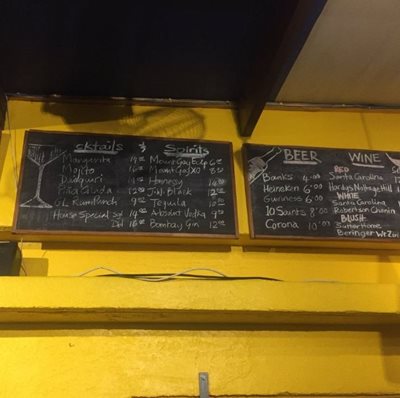 cktails $
Margerita 14.00
Mojito 16.00
Daiquari
Piña Colada 12.00
G.L Rum Punch 9.00
House Special Sgl
Dbl 16.00
Spirits
Mount Gay Eclp 6.00
Mount Gay XO
Hennesy 14.00
J.W. Black 12.00
Tequila
Absolut Vodka 9.00
Bombay Gin 12.00
BEER
Banks 4.00
Heineken 6.00
Guinness 6.00
10 Saints 8.00
Corona 10.00
WINE
RED
Santa Carolina
Hardys Nottage Hill
WHITE
Santa Carolina
Robertson Chenin
BLUSH
Sutter Home
Beringer Wt Zin